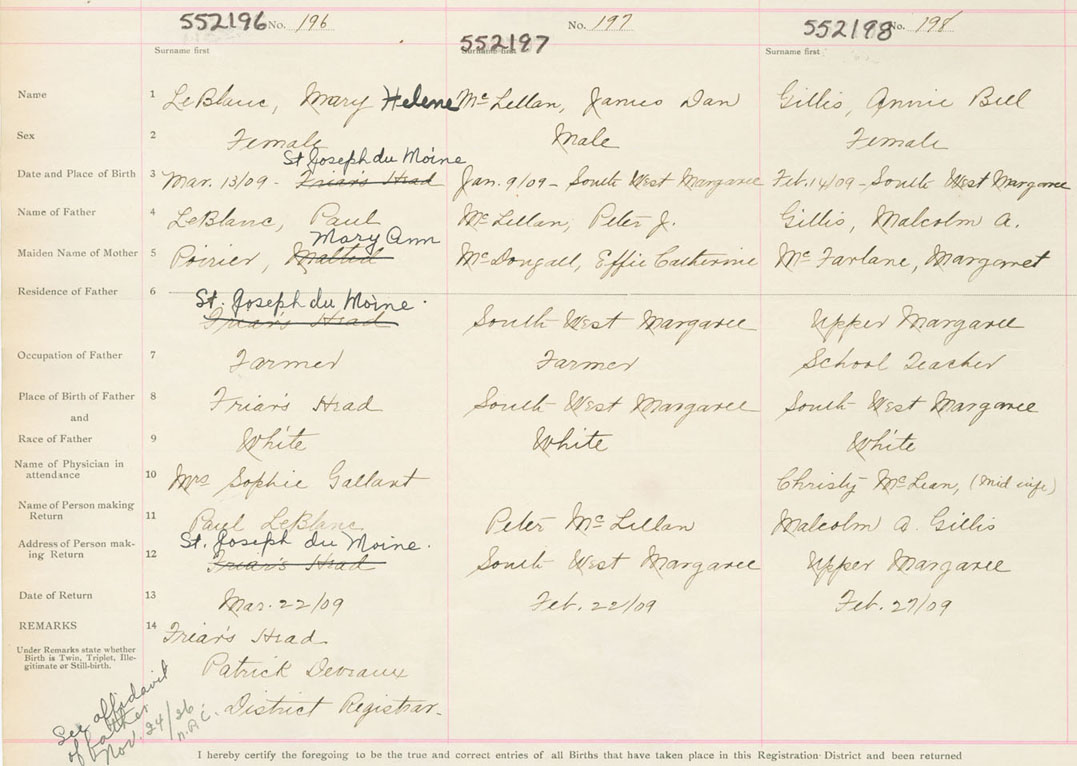 552196 No. 196 552197 No. 197 552198 No. 198
Surname first Surname first Surname first
Name 1 LeBlanc, Mary Helene McLellan, James Dan Gillis, Annie Bell
Sex 2 Female Male Female
St Joseph du Moine
Date and Place of Birth 3 Mar. 13/09 - Friar's Head Jan. 9/09 - South West Margaree Feb. 14/09 - South West Margaree
Name of Father 4 LeBlanc, Paul McLellan, Peter J. Gillis, Malcolm A.
Mary Ann
Maiden Name of Mother 5 Poirier, McDougall, Effie Catherine McFarlane, Margaret
Residence of Father 6 St. Joseph du Moine.
Friar's Head South West Margaree Upper Margaree
Occupation of Father 7 Farmer Farmer School Teacher
Place of Birth of Father 8 Friar's Head South West Margaree South West Margaree
and
Race of Father 9 White White White
Name of Physician in
attendance 10 Mrs Sophie Gallant Christy McLean, (Mid wife)
Name of Person making
Return 11 Paul LeBlanc Peter McLellan Malcolm A. Gillis
St. Joseph du Moine.
Address of Person mak-
ing Return 12 Friar's Head South West Margaree Upper Margaree
Date of Return 13 Mar. 22/09 Feb. 22/09 Feb. 27/09
REMARKS 14 Friar's Head
Under Remarks state whether
Birth is Twin, Triplet, Ille-
gitimate or Still-birth.
Patrick Deveaux
District Registrar.
See affidavit
of father
Nov. 24/26
I hereby certify the foregoing to be the true and correct entries of all Births that have taken place in this Registration District and been returned